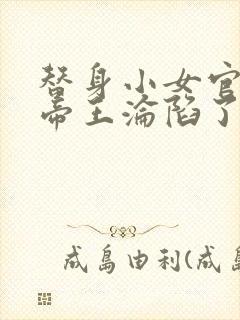 替身小女官
帝王淪陷了
成島由利(成島